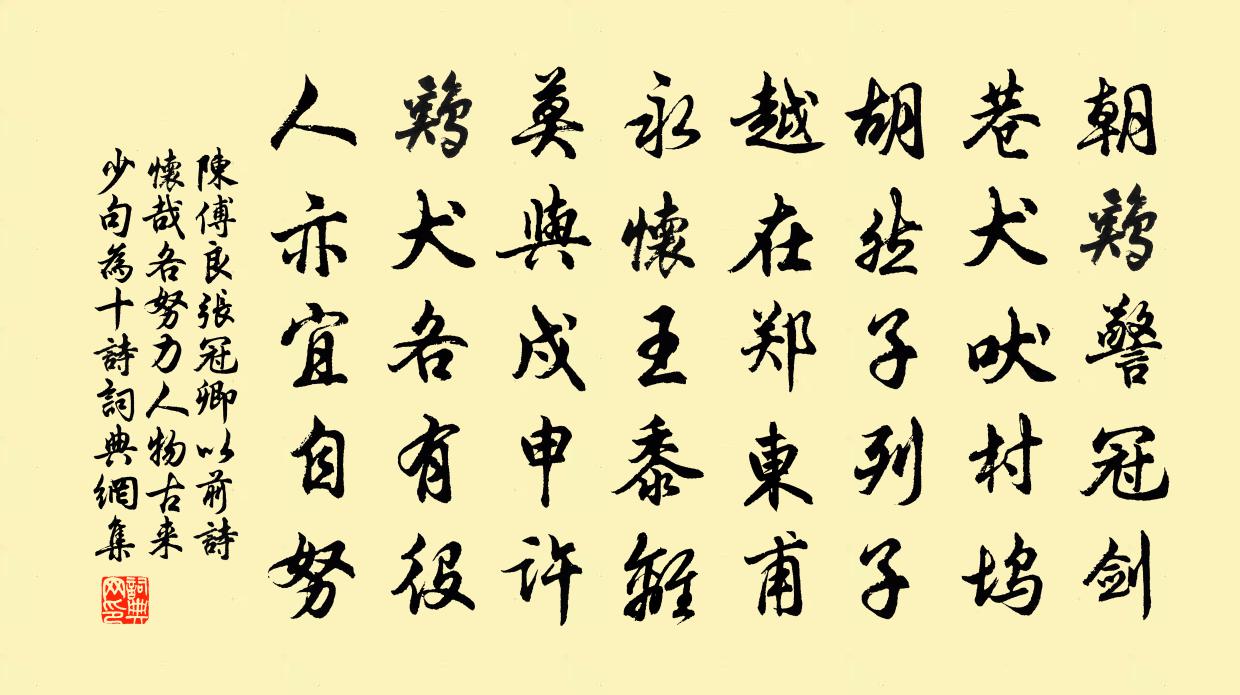 朝鷄警冠剑
巷犬吠村坞
胡然子列子
越在郑東甫
永懷王黍離
莫與戍申许
鷄犬各有役
人亦宜自努
陳傅良張冠卿以前詩
懷哉各努力人物古来
少句為十詩詞典網集
詞典网印